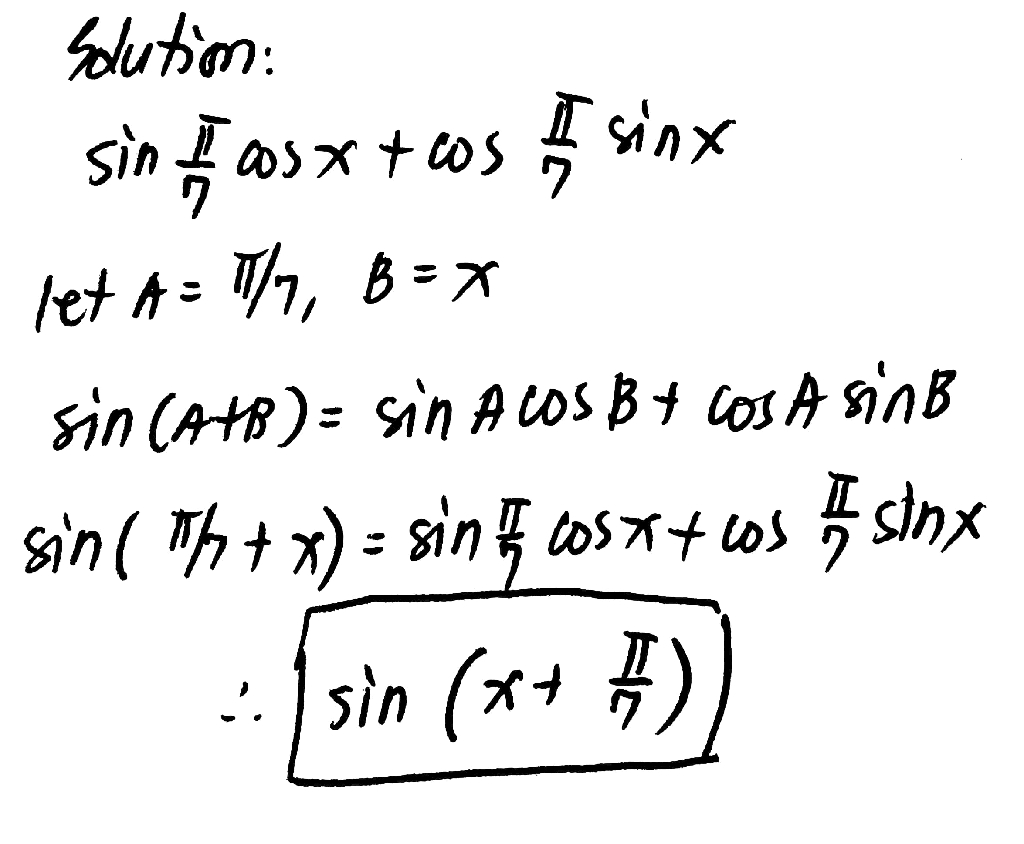 Solution:
sin π/7 cos x + cos π/7 sin x
let A = π/7, B = x
sin (A+B) = sin A cos B + cos A sin B
sin ( π/7 + x) = sin π/7 cos x + cos π/7 sin x
∴ sin (x + π/7)